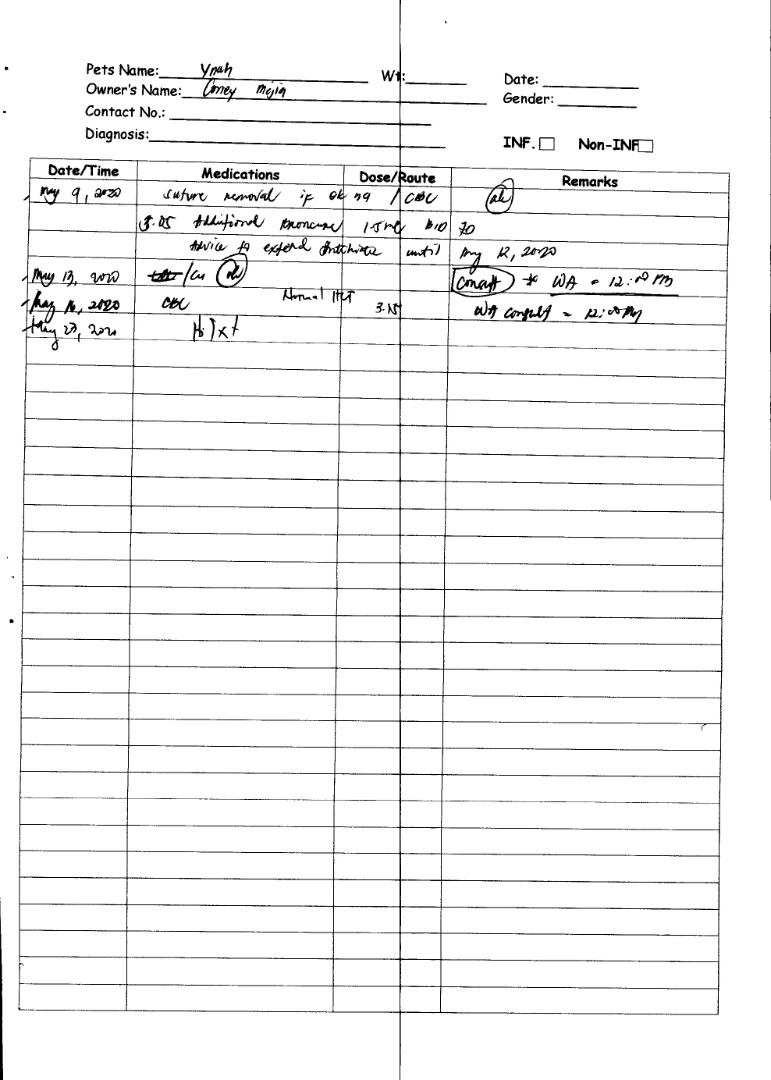 Pets Name: Ynah Wt:
Date:
Owner's Name: Coney Mejia
Gender:
Contact No.:
Diagnosis:
INF. Non-INF
Date/Time Medications Dose/Route Remarks
May 9, 2020 suture removal if ok na / CBC ok
Additional 1.5 ml BID 7D
Advice to extend antibiotic until May 12, 2020
May 13, 2020 WA = 12:00 PM
May 16, 2020 CBC Normal HCT 3.15 WA consult = 12:00 PM
May 23, 2020